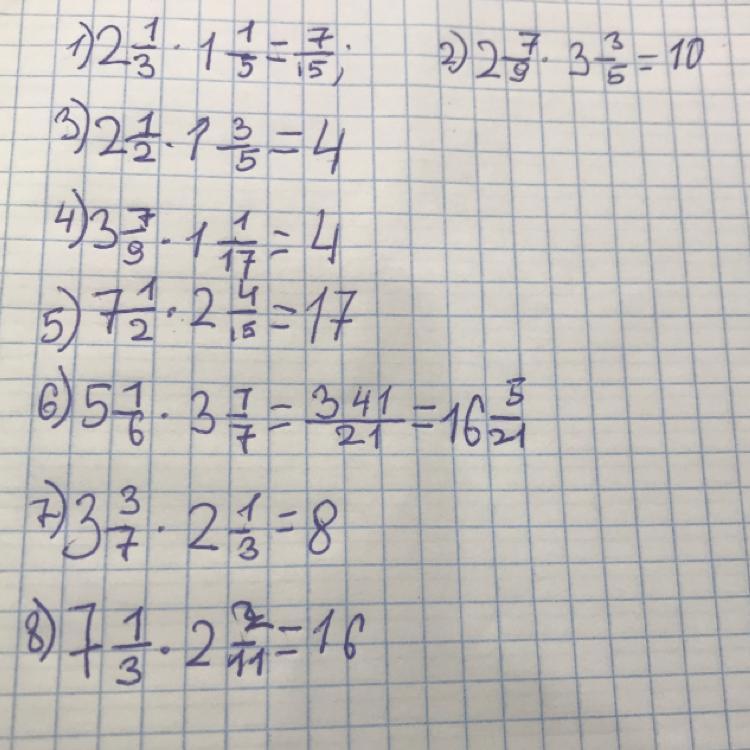 1) 2 1/3 · 1 1/5 = 7/15; 2) 2 7/9 · 3 3/5 = 10
3) 2 1/2 · 1 3/5 = 4
4) 3 7/9 · 1 1/17 = 4
5) 7 1/2 · 2 4/15 = 17
6) 5 1/6 · 3 1/7 = 341/21 = 16 5/21
7) 3 3/7 · 2 1/3 = 8
8) 7 1/3 · 2 2/11 = 16